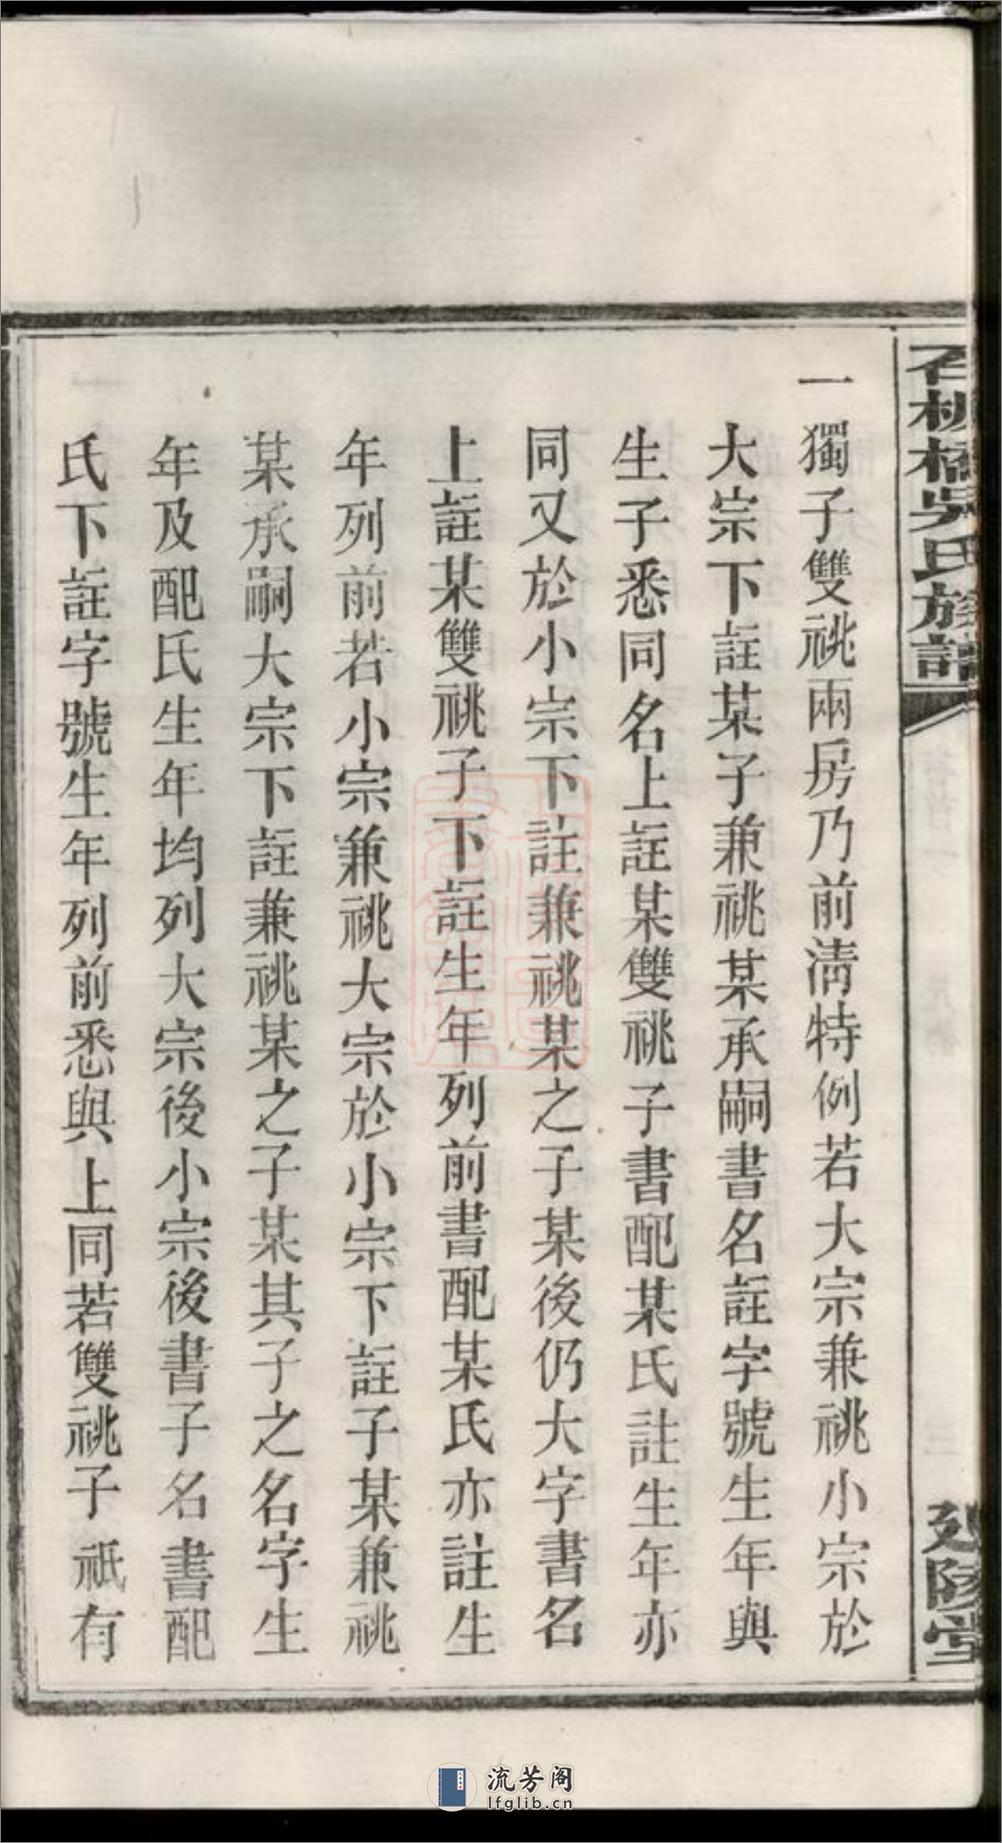 石桃橋吳氏族譜
延陵堂
一獨子雙祧兩房乃前淸特例若大宗兼祧小宗於
大宗下註某子兼祧某承嗣書名註字號生年與
生子悉同名上註某雙祧子書配某氏註生年亦
同又於小宗下註兼祧某之子某後仍大字書名
上註某雙祧子下註生年列前書配某氏亦註生
年列前若小宗兼祧大宗於小宗下註子某兼祧
某承嗣大宗下註兼祧某之子某其子之名字生
年及配氏生年均列大宗後小宗後書子名書配
氏下註字號生年列前悉與上同若雙祧子祇有
流芳阁
lfglib.cn